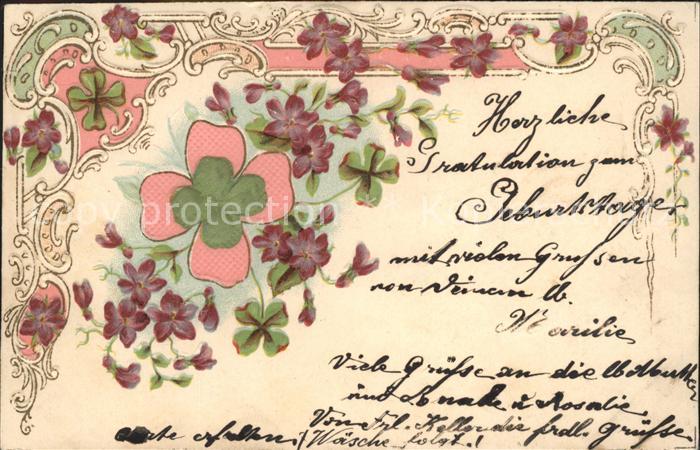 Herzliche
Gratulation zum
Geburtstage,
mit vielen Grussen
von Deinem lb.
Marilie
Viele Grüsse an die lb Mutter
und u Rosalie.
Von Frl. Keller die frdl. Grüsse
erhalten, Wäsche folgt!
copy protection